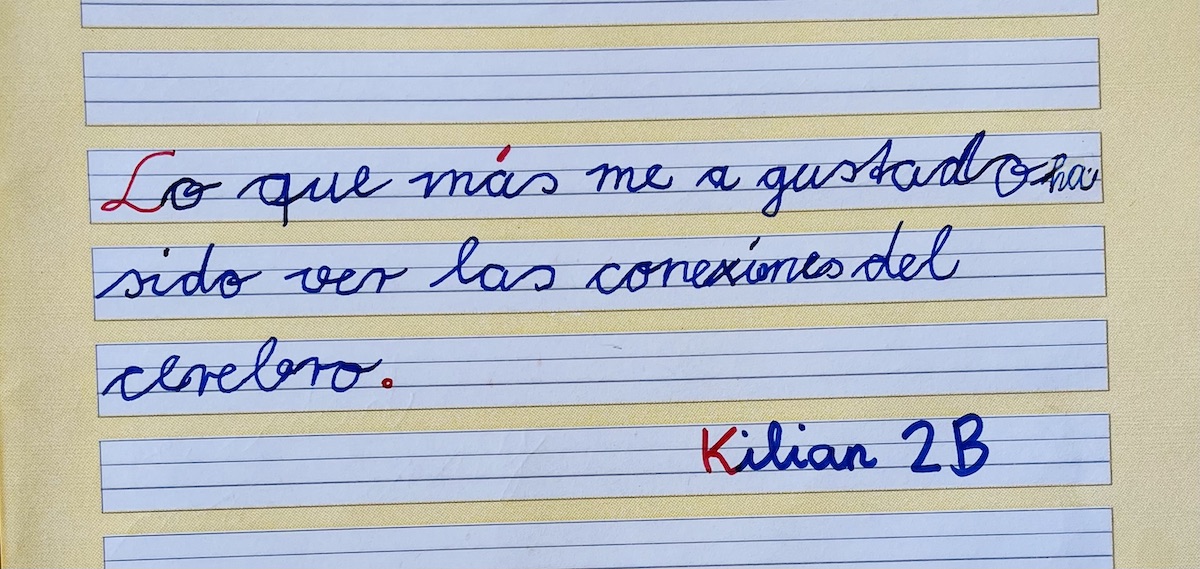 Lo que más me a gustado ha
sido ver las conexiones del
cerebro.
Kilian 2B